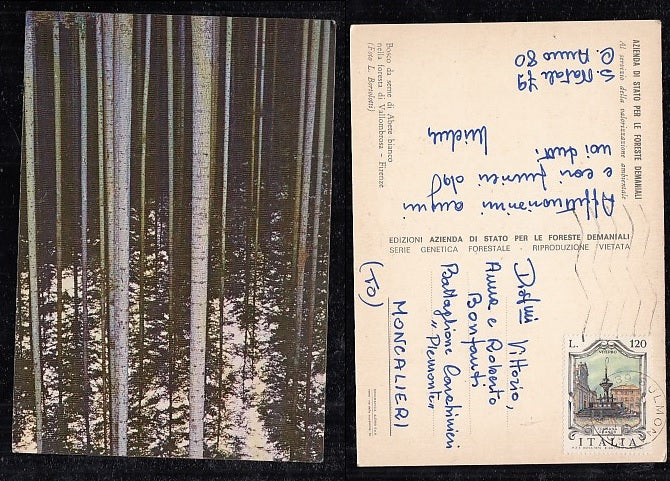 AZIENDA DI STATO PER LE FORESTE DEMANIALI
Al servizio della valorizzazione ambientale
Bosco da seme di Abete bianco
nella foresta di Vallombrosa - Firenze
(Foto L. Bortolotti)
S. Natale 79
C. Anno 80
Affettuosissimi auguri
e cari pensieri da
noi tutti.
EDIZIONI AZIENDA DI STATO PER LE FORESTE DEMANIALI
SERIE GENETICA FORESTALE - RIPRODUZIONE VIETATA
Vittorio,
Anna e Roberto
Bonfanti
Battaglione Carabinieri
"Piemonte"
MONCALIERI
(TO)
L. 120
VITERBO
ITALIA